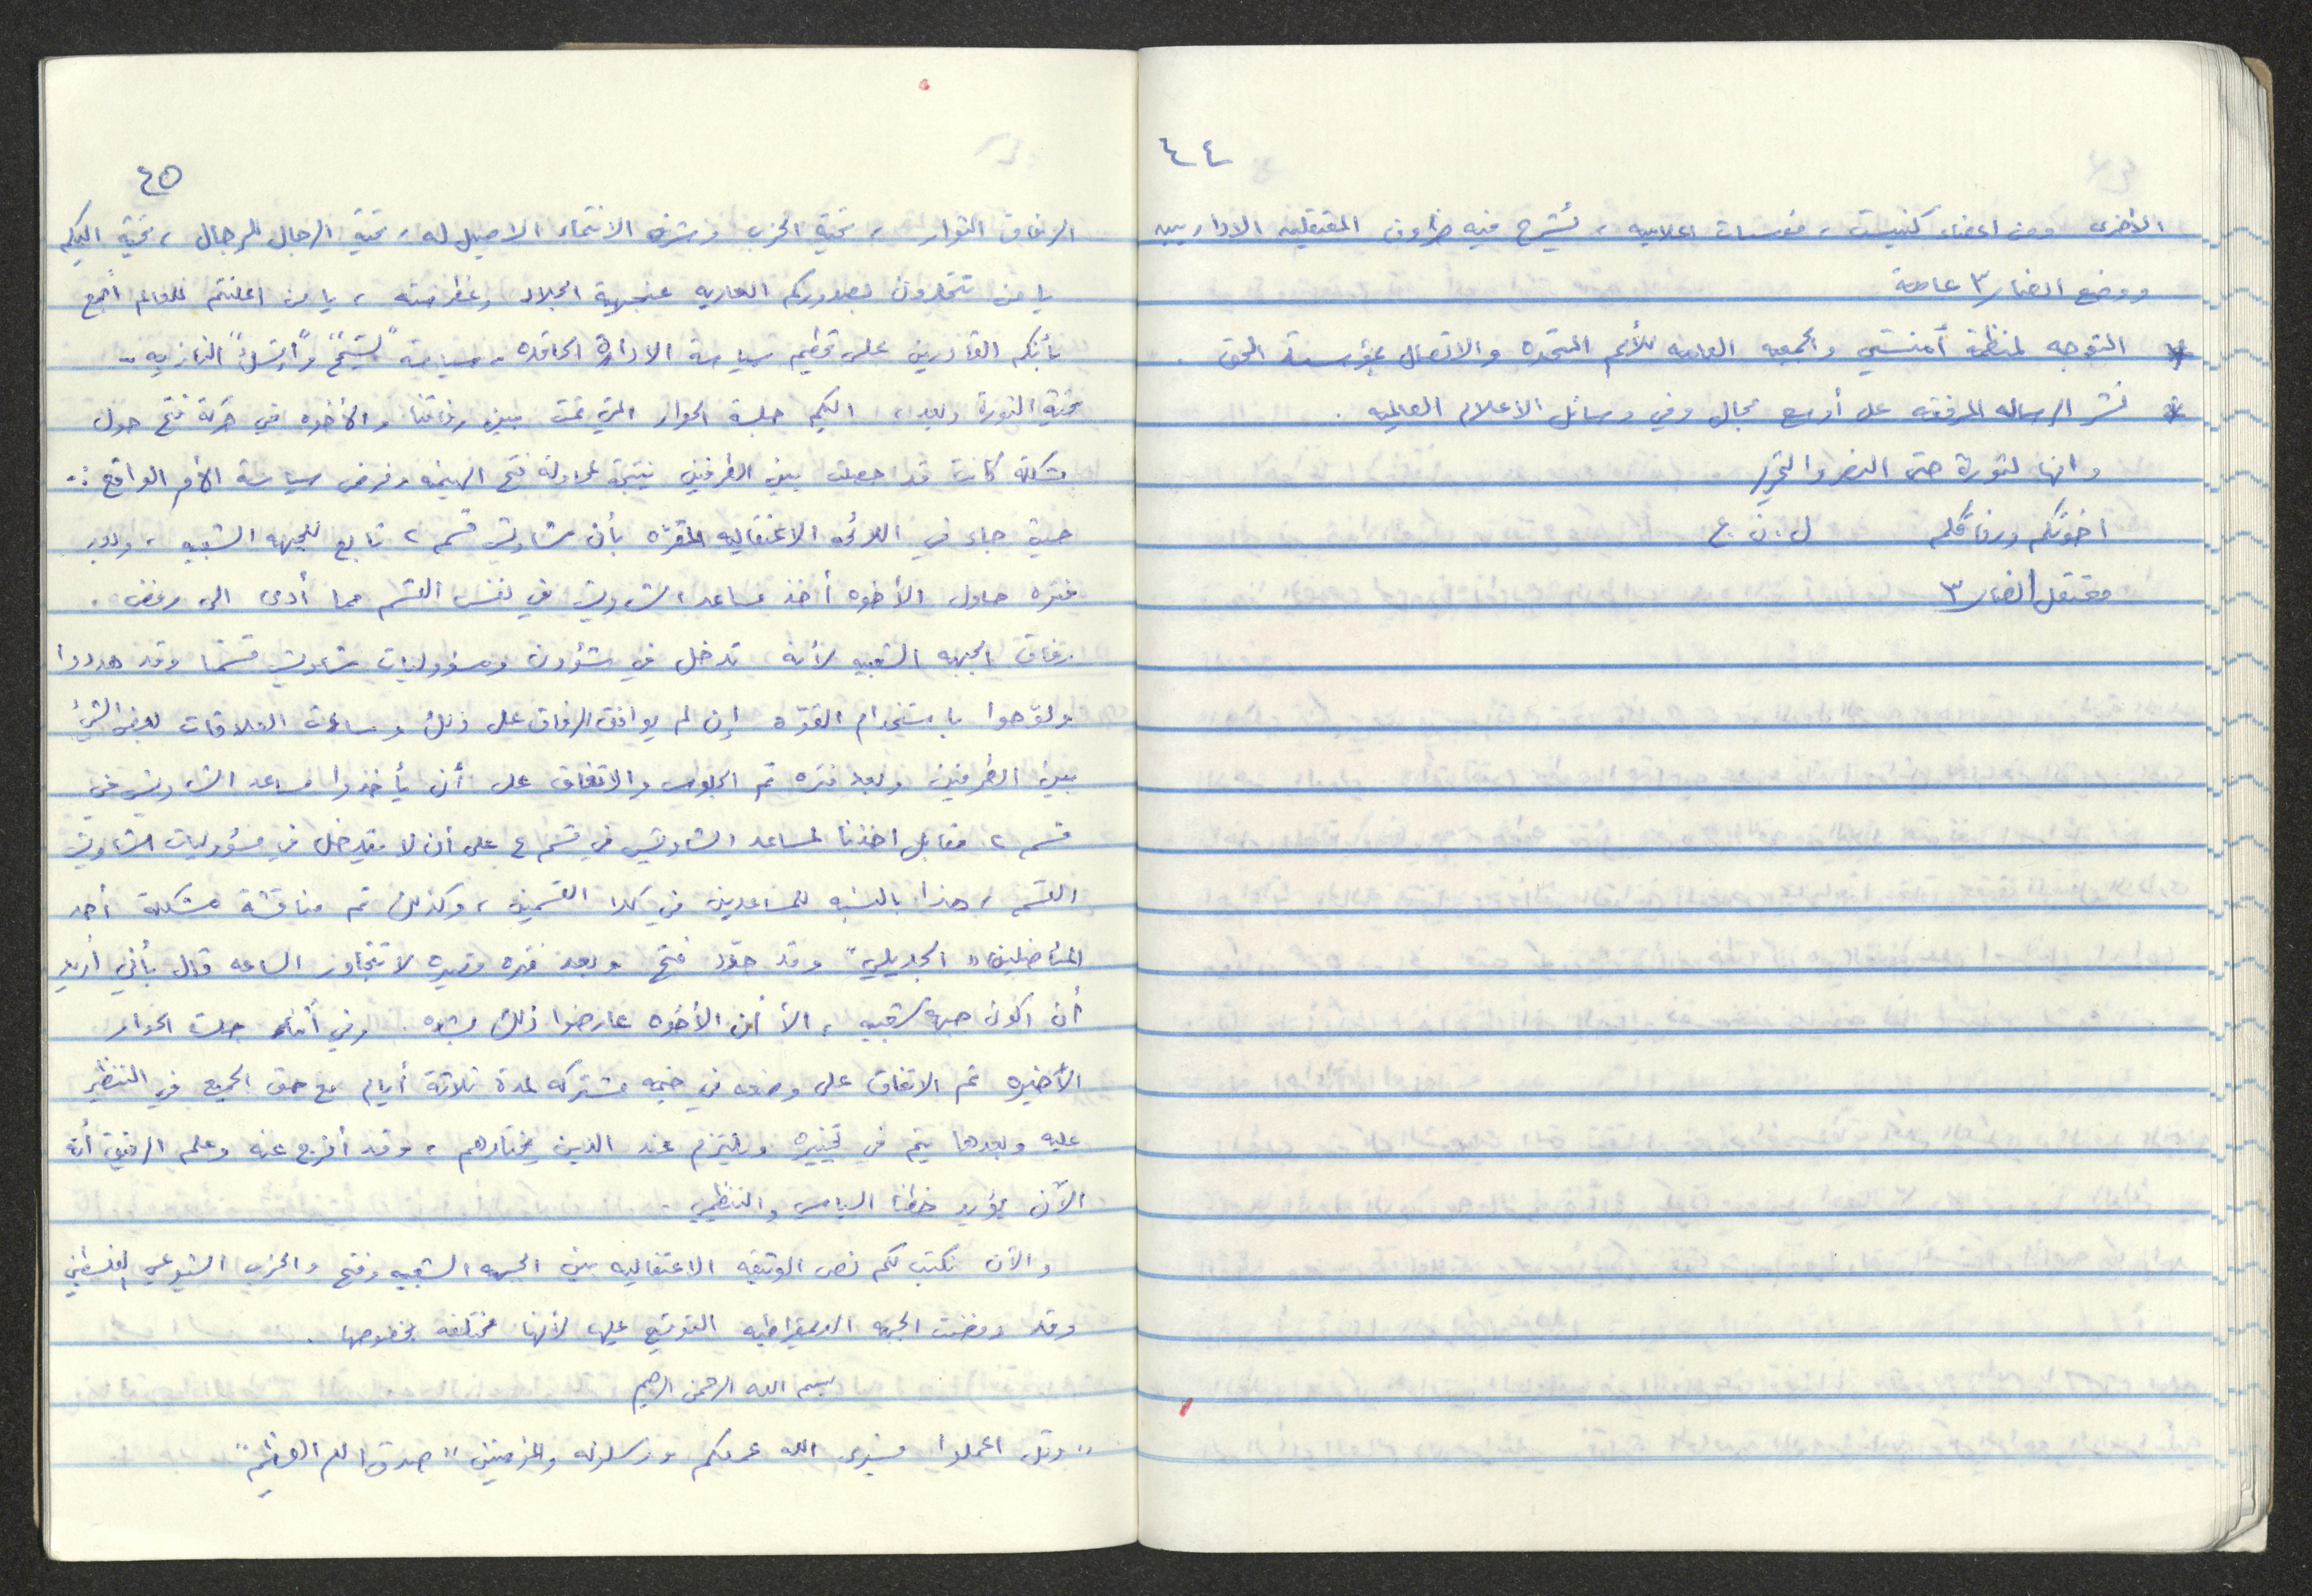 ٤٤
الأخرى ومن اعضاء كنيست، مؤسسات اعلاميه، يُشرح فيه ظروف المعتقلين الاداريين
ووضع انصار ٣ عامة
* التوجه لمنظمة أمنستي والجمعيه العامه للأمم المتحده والاتصال بمؤسسة الحق .
* نشر الرساله المرفقه على أوسع مجال وفي وسائل الاعلام العالميه .
وانها لثورة حتى النصر والتحرير
اخوتكم ورفاقكم ل . ن . ع
معتقل انصار ٣
٤٥
الرفاق الثوار ، تحية الحزب وشرف الانتماء الاصيل له، تحية الرجال للرجال ، تحية اليكم
يا من تتحدون بصدوركم العاريه عنجهية الجلاد وغطرسته ، يا من اعلنتم للعالم أجمع
بأنكم القادرين على تحطيم سياسة الادارة الحاقده وسياسة "تسيمح" و"ايتسك" النازيه ..
تحية الثورة وبعد، اليكم جلسة الحوار التي تمت بين رفاقنا والأخوه في حركة فتح حول
مشكلة كانت قد حصلت بين الطرفين نتيجة لمحاولة فتح الهيمنه وفرض سياسة الأمر الواقع :-
حيث جاء في اللائحه الاعتقاليه المقرّه بأن شاويش قسم ٢ تابع للجبهه الشعبيه ، وبعد
فتره حاول الأخوه أخذ مساعد الشاويش في نفس القسم مما أدى الى رفض .
رفاق الجبهه الشعبيه لأنه تدخل في شؤون ومسؤوليات شاويش قسمنا وقد هددوا
ولوّحوا باستخدام القوّه إن لم يوافق الرفاق على ذلك وساءت العلاقات لبعض الشيء
بين الطرفين وبعد فتره تم الجلوس والاتفاق على أن يأخذوا مساعد الشاويش في
قسم ٢ مقابل اخذنا لمساعد الشاويش في قسم ٤ على أن لا يتدخل في مسؤوليات الشاويش
القسم ، هذا بالنسبه للمساعدين في كلا القسمين ، وكذلك تم مناقشة مشكلة أحد
المناضلين "الجديلي" وقد حوّد فتح وبعد فتره قصيره لا تتجاوز الساعه قال بأني أريد
أن اكون جبهة شعبيه ، الا أن الأخوه عارضوا ذلك بشده . وفي أثناء جلسة الحوار
الأخيره تم الاتفاق على وضعه في خيمه مشتركه لمدة ثلاثة أيام مع حق الجميع في التنظير
عليه وبعدها يتم تخييره وليلتزم عند الذين يختارهم ، وقد أفرج عنه وعلم الرفيق أنه
الآن يؤيد خطنا السياسي والتنظيمي .
والآن نكتب لكم نص الوثيقه الاعتقاليه بين الجبهه الشعبيه وفتح والحزب الشيوعي الفلسطيني
وقد رفضت الجبهه الديمقراطيه التوقيع عليها لأنها مختلفه بخصوصها .
بسم الله الرحمن الرحيم
" وقل اعملوا فسيرى الله عملكم ورسوله والمؤمنين " صدق الله العظيم "